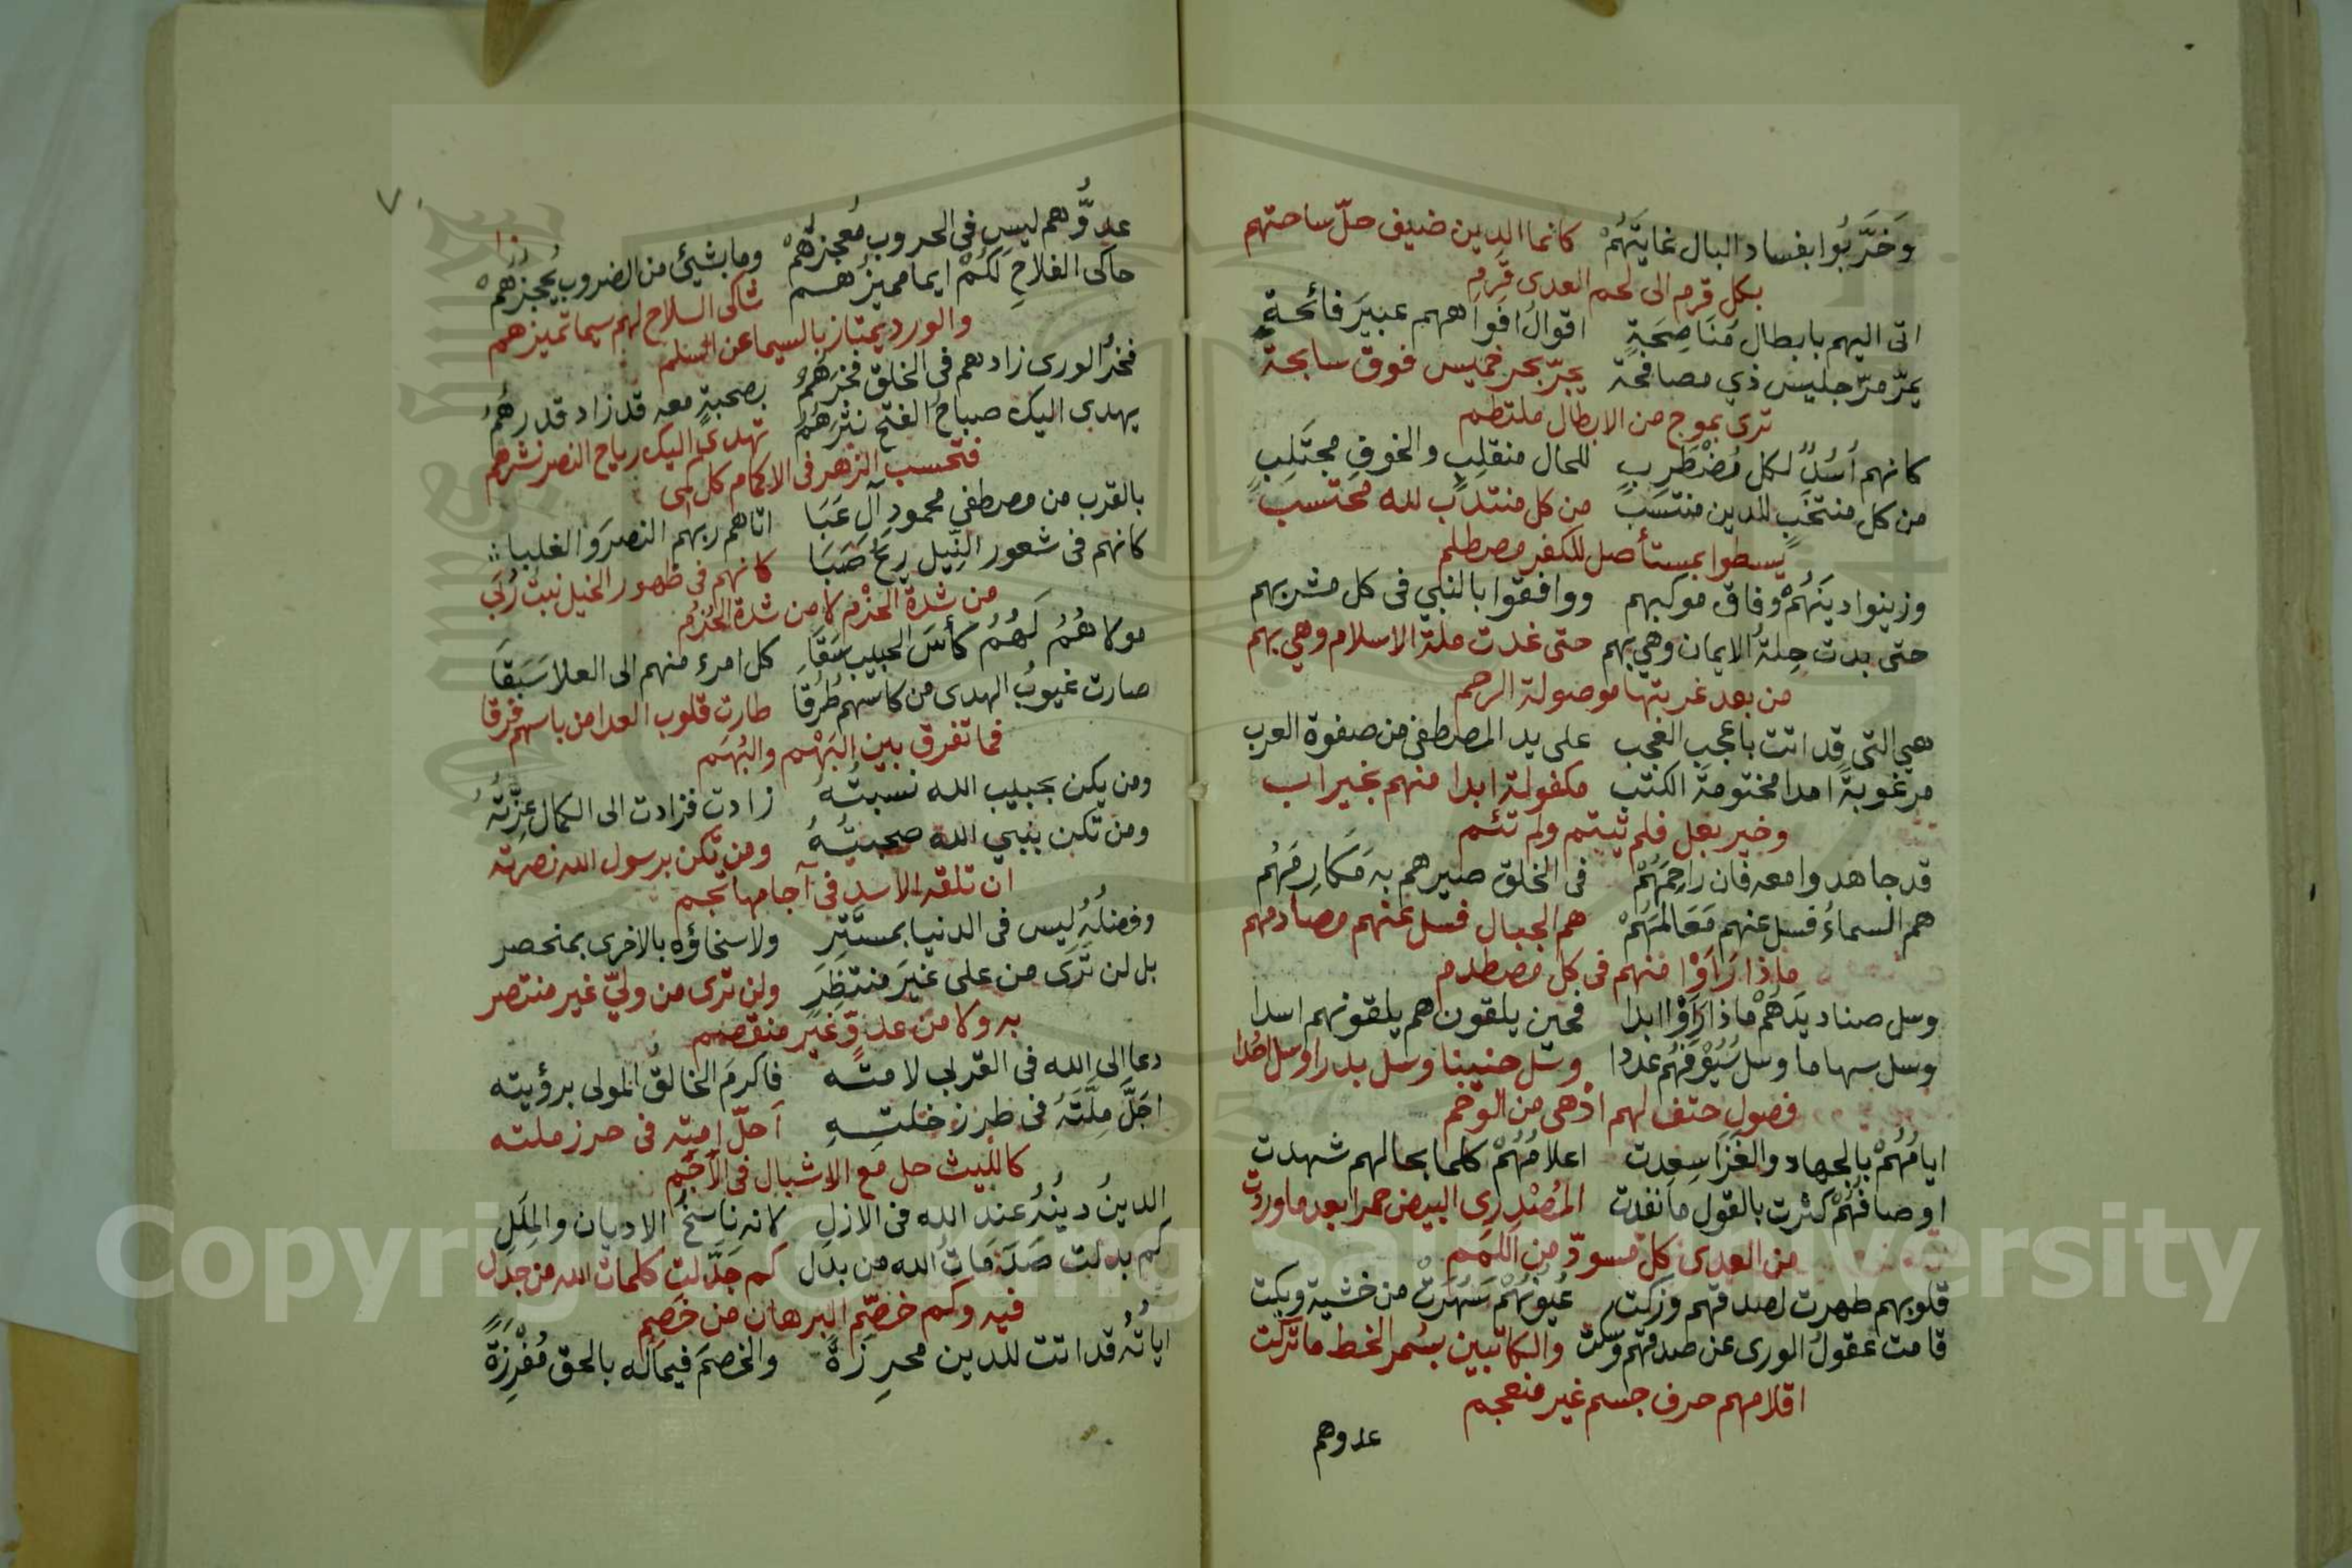 وَخَرَّبُوا بفساد البال غايتَهُمْ كانما الدين ضيف حلّ ساحتهم
بكل قرم الى لحم العدى قرم
اتى اليهم بابطال مُنَاصِحَةٍ اقوالُ افَواههم عبيرَ فائحة
يمرّ مرّ جليس ذي مصافحة يجرّ بحر خميس فوق سابحة
ترى بموج من الابطال ملتطم
كانهم أُسُدٌ لكل مُضْطَرِبٍ للحال منقلِبٍ والخوفِ مجتَلِبٍ
من كل منتخَبٍ للدين منتسَبٍ من كل منتدب لله محتسب
يسطوا بمستأصل للكفر مصطلم
وزينوا دينَهُمْ وفاق موكبهم ووافقوا بالنبي فى كل مشربهم
حتى بدت حِلةُ الايمان وهي بهم حتى غدت ملة الاسلام وهي بهم
من بعد غربتها موصولة الرحم
هي التى قد اتت باعجب العجب على يد المصطفى من صفوة العرب
مرغوبةً امدا مختومةَ الكتب مكفولة ابدا منهم بخير اب
وخير بعل فلم تيتم ولم تئم
قد جاهدوا معه فان راحِمَهُمْ فى الخلق صيرهم به مَكارِمَهُم
هم السماءُ فسل عنهم مَعَالمَهُمْ هم الجبال فسل عنهم مصادمهم
ماذا رَاَوْا منهم فى كل مصطدم
وسل صناديدَهُمْ ماذا رَاَوْا ابدا فحين يلقون هم يلقونهم اسدا
وسل سهاما وسل سُيُوْفَهُم عددا وسل حنينا وسل بدرا وسل احُدا
فصول حتف لهم ادهى من الوخم
ايامُهُمْ بالجهاد والغَزَا سعِدت اعلامُهُمْ كلما بحالهم شهدت
اوصافُهُمْ كثرت بالقول ما نفدت المُصْدِرِى البيض حمرا بعد ما وردت
من العدى كلّ مسودّ من اللمم
قلوبهم طهرت لصدقهم وزكت عُيُونُهُمْ سَهَرَتْ من خشية وبكت
قامت عقولُ الورى عن صدقهم وسكت والكاتبين بسُمر الخط ما تركت
اقلامهم حرف جسم غير منعجم
عدوهم
٧
عدوُّهم ليس فى الحروب مُعجزهُمْ وما بشيئ من الضروب يُحجزُهُمْ
حاكى الفلاحِ لَكُمْ ايما مميزُهم شاكى السلاح لهم سيما تميزهم
والورد يمتاز بالسيما عن السلم
فخرُ الورى زادهم فى الخلق فخرَهُمُ بصحبةٍ معه قد زاد قدرهُمُ
يهدى اليك صباحُ الفتح نثرَهُمُ تهدى اليك رياح النصر نشرهم
فتحسب الزهر فى الاكمام كل كمى
بالقرب من مصطفى محمودِ آلِ عَبَا اتاهم ربهم النصرَ والغلبا
كانهم فى شعور النِّيل ريحُ صَبَا كانهم فى ظهور الخيل نبت رُبَى
من شدة الحَزْم لا من شدة الحُزُم
مولاهُمُ لَهُمُ كأسَ الحبيب سَقَا كل امرء منهم الى العلا سَبَقَا
صارت غيوبُ الهدى من كاسهم طُرُقا طارت قلوب العدا من باسهم فرقا
فما تفرق بين البَهْم والبُهَم
ومن يكن بحبيب الله نسبتُهُ زادت فزادت الى الكمال عِزّتُهُ
ومن تكن بنبي الله صحبتُهُ ومن تكن برسول الله نصرته
ان تلقه الاسد فى آجامها تجم
وفضلُهُ ليس فى الدنيا بمستَتِرِ ولا سخاؤه بالاخرى بمنحصر
بل لن تَرَى من على غيرَ منتظَرِ ولن ترى من وليّ غير منتصر
به ولا من عدوٍّ غير منقصم
دعا الى الله فى القربى لامتّه فاكرمَ الخالقُ المولى برؤيته
اجَلَّ مِلَّتَهُ فى طرز خلتِهِ احلّ امته فى حرز ملته
كالليث حل مع الاشبال فى الأجَم
الدينُ دينُهُ عند الله فى الازلِ لانه ناسخُ الاديان والمِلَلِ
كم بدلت صَدَمَاتُ الله من بدل كم جَدّلت كلمات الله من جدل
فيه وكم خصّم البرهان من خصِم
اياتُه قد اتت للدين محرِزَةً والخصمَ فيما له بالحق مُفْرِزَةً
Copyright © King Saud University
1957